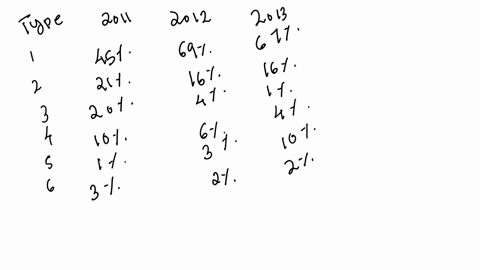 Type 2011 2012 2013
1 45% 69% 67%
2 21% 16% 16%
3 20% 4% 1%
4 10% 6% 4%
5 1% 3% 10%
6 3% 2% 2%